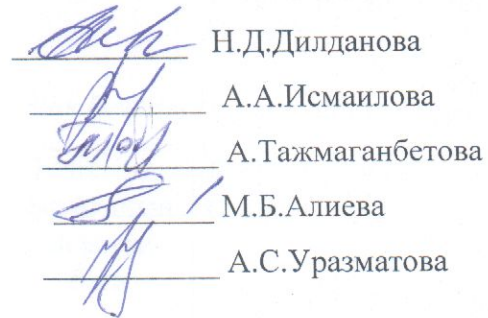 Н.Д.Дилданова
А.А.Исмаилова
А.Тажмаганбетова
М.Б.Алиева
А.С.Уразматова